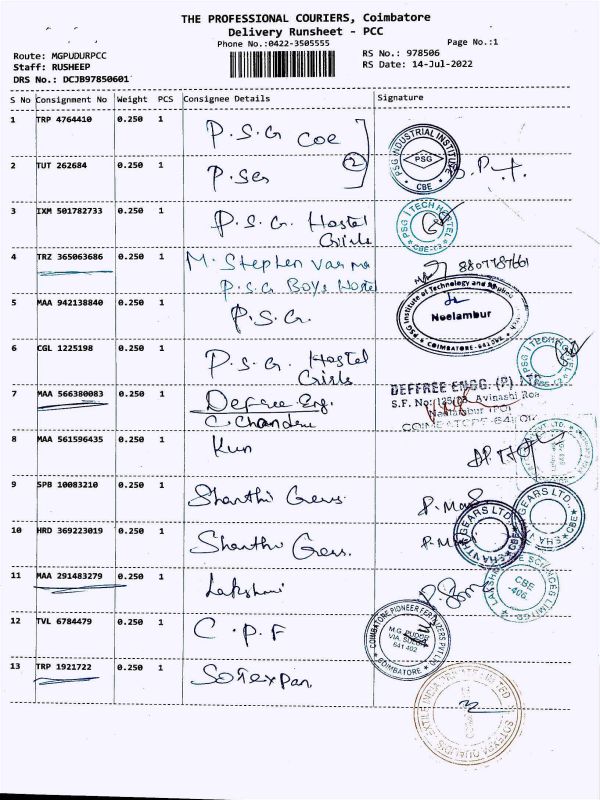 THE PROFESSIONAL COURIERS, Coimbatore
Delivery Runsheet - PCC
Phone No.:0422-3505555
Page No.:1
Route: MGPUDURPCC
RS No.: 978506
Staff: RUSHEEP
RS Date: 14-Jul-2022
DRS No.: DCJB97850601
S No Consignment No Weight PCS Consignee Details Signature
1 TRP 4764410 0.250 1 P.S.G COE
PSG INDUSTRIAL INSTITUTE
PSG
CBE
2 TUT 262684 0.250 1
2
3 IXM 501782733 0.250 1 P.S.G. Hostel
Girls
PSG iTECH HOSTEL
4 TRZ 365063686 0.250 1 M. Stephen Varma
P.S.G Boys Hostel
8807787661
5 MAA 942138840 0.250 1 P.S.G.
PSG Institute of Technology and Applied
Neelambur
COIMBATORE
6 CGL 1225198 0.250 1 P.S.G. Hostel
Girls
PSG iTECH HOSTEL
7 MAA 566380083 0.250 1 Deffree Eng.
C. Chandru
DEFFREE ENGG. (P) LTD
S.F. No: Avinashi Roa
8 MAA 561596435 0.250 1 Kun
9 SPB 10083210 0.250 1 Shanthi Gears
GEARS LTD.
CBE
10 HRD 369223019 0.250 1 Shanthi Gears.
GEARS LTD.
CBE
11 MAA 291483279 0.250 1 Lakshmi
CBE
406.
12 TVL 6784479 0.250 1 C.P.F
COIMBATORE PIONEER FERTILIZERS PVT LTD
M.G. PUDUR
641 402
COIMBATORE
13 TRP 1921722 0.250 1 Sotexpan